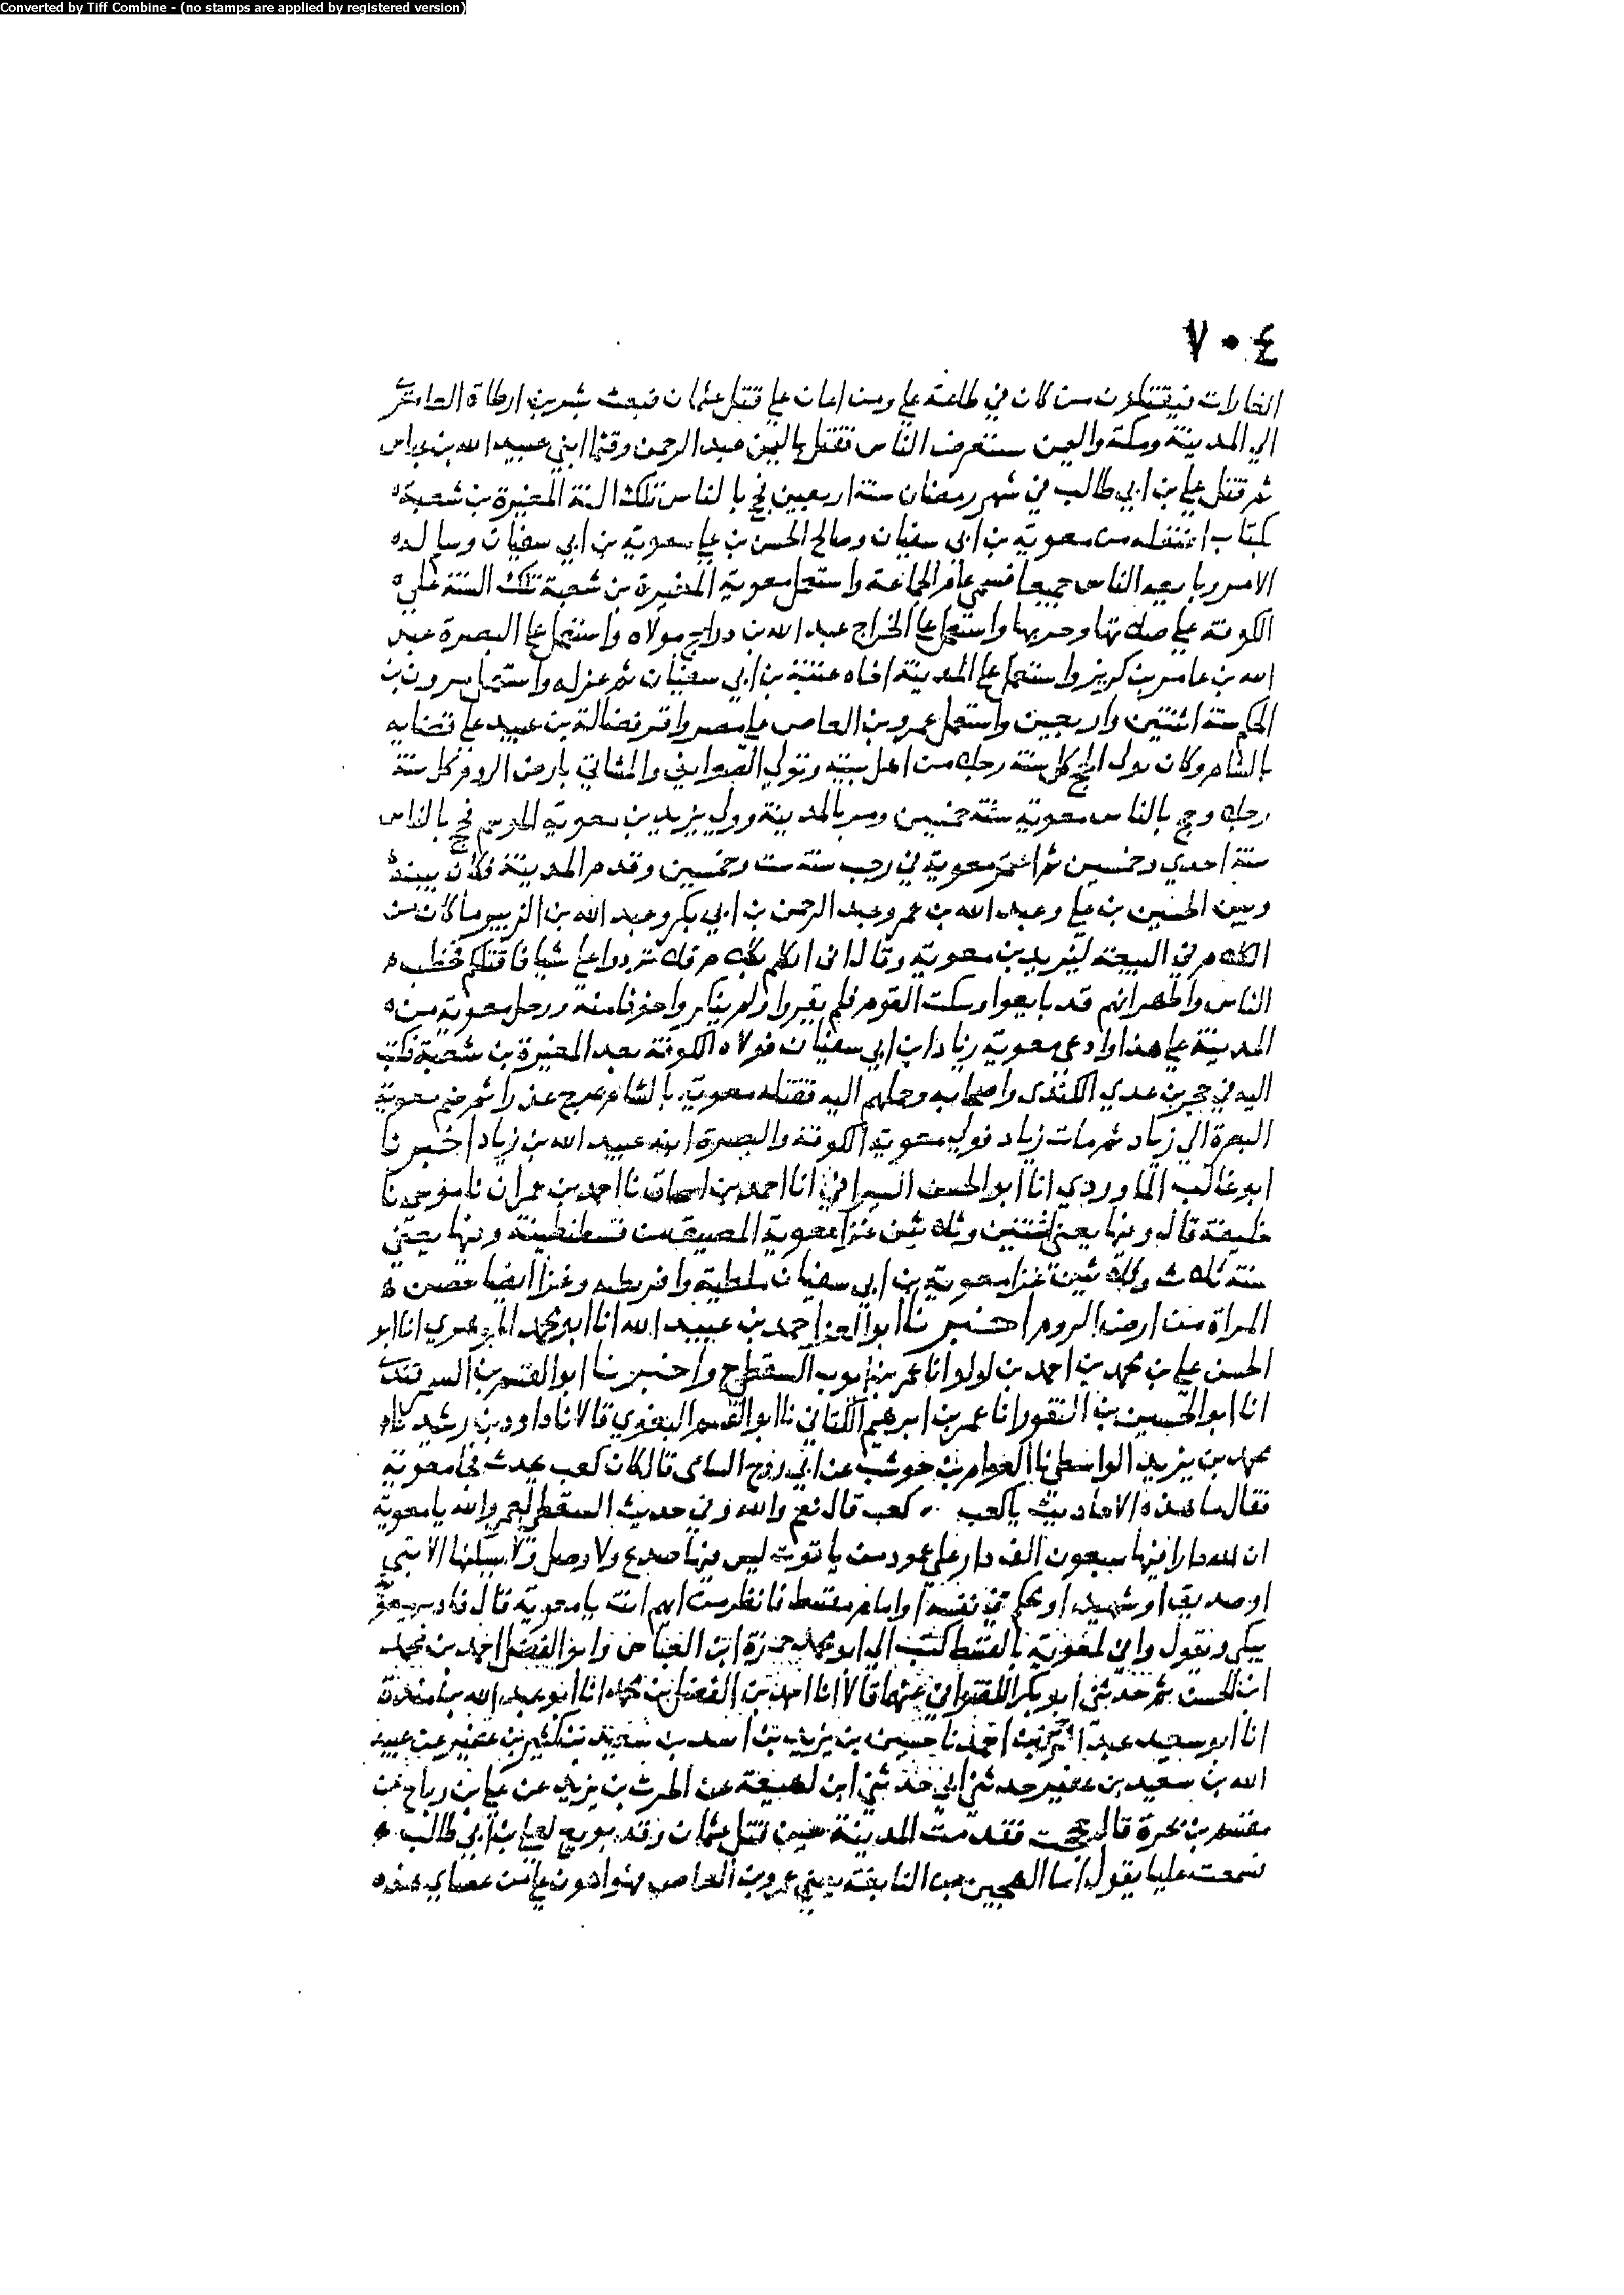 Converted by Tiff Combine - (no stamps are applied by registered version)
٧٠٤
الغارات فيقتلون من كان في طاعة علي ومن اعان على قتل عثمان فبعث بسر بن ارطاة العامري
الي المدينة ومكة واليمن يستعرض الناس فقتل باليمن عبد الرحمن وقثما ابني عبيد الله بن عباس
ثم قتل علي بن ابي طالب في شهر رمضان سنة اربعين فحج بالناس تلك السنة المغيرة بن شعبة
بكتاب افتعله من معوية بن ابي سفيان وصالح الحسن بن علي معوية بن ابي سفيان وسلم له
الامر وبايعه الناس جميعا فسمي عام الجماعة واستعمل معوية المغيرة بن شعبة تلك السنة علي
الكوفة علي صلاتها وحربها واستعمل علي الخراج عبد الله بن دراج مولاه واستعمل علي البصرة عبد
الله بن عامر بن كريز واستعمل علي المدينة اخاه عتبة بن ابي سفيان ثم عزله واستعمل مرون بن
الحكم سنة اثنتين واربعين واستعمل عمرو بن العاص علي مصر واقر فضالة بن عبيد علي قضايه
بالشام وكان يولي الحج كل سنة رجلا من اهل بيته وتولي الصوايف والمشاتي بارض الروم كل سنة
رجلا وحج بالناس معوية سنة خمسين ومر بالمدينة وولي يزيد بن معوية الموسم فحج بالناس
سنة احدي وخمسين ثم اعتمر معوية في رجب سنة ست وخمسين وقدم المدينة فكان بينه
وبين الحسين بن علي وعبد الله بن عمر وعبد الرحمن بن ابي بكر وعبد الله بن الزبير ما كان من
الكلام في البيعة ليزيد بن معوية وقال اني اتكلم بكلام فلا تردوا علي شيا فاقتلكم فخطب
الناس واظهر انهم قد بايعوا وسكت القوم فلم يقروا ولم ينكروا خوفا منه ورحل معوية من
المدينة علي هذا وادعي معوية زيادا بن ابي سفيان فولاه الكوفة بعد المغيرة بن شعبة فكتب
اليه في حجر بن عدي الكندي واصحابه وحملهم اليه فقتله معوية بالشام بمرج عذرا ثم ضم معوية
البصرة الي زياد ثم مات زياد فولي معوية الكوفة والبصرة ابنه عبيد الله بن زياد اخبرنا
ابو غالب الماوردي انا ابو الحسن السيرافي انا احمد بن اسحاق نا احمد بن عمران نا موسي نا
خليفة قال وفيها يعني اثنتين وثلاثين غزا معوية المضيق من قسطنطينة وفيها يعني
سنة ثلاث وثلاثين غزا معوية بن ابي سفيان ملطية وافريطيه وغزا ايضا حصن
المراة من ارض الروم اخبرنا ابو العز احمد بن عبيد الله انا ابو محمد الجوهري انا ابو
الحسن علي بن محمد بن احمد بن لولو انا عمر بن ايوب السقطي ح واخبرنا ابو القسم بن السمرقندي
انا ابو الحسين بن النقور انا عمر بن ابرهيم الكتاني نا ابو القسم البغوي قالا نا داود بن رشيد نا
محمد بن يزيد الواسطي نا العوام بن حوشب عن ابي روح السامي قال كان كعب يحدث في معوية
فقال ما هذه الاحاديث يا كعب كعب قال نعم والله وفي حديث السقطي لعمر والله يا معوية
ان لله دارا فيها سبعون الف دار علي عمود من ياقوت ليس فيها صدع ولا وصل ولا يسكنها الا نبي
او صديق او شهيد او محكم في نفسه او امام مقسط فانظر من ايهم انت يا معوية قال فادبر معوية
يبكي ويقول واني لمعوية بالقسط كتب الي ابو محمد حمزة ابن العباس وابو الفضل احمد بن محمد
ابن الحسن ثم حدثني ابو بكر اللفتواني عنهما قالا انا احمد بن الفضل بن محمد انا ابو عبد الله بن مندة
انا ابو سعيد عبد الرحمن بن احمد نا حسين بن يزيد بن اسد بن سعيد بن كثير بن عفير عن عبيد
الله بن سعيد بن عفير حدثني ابي حدثني ابن لهيعة عن الحرث بن يزيد عن علي بن رباح عن
مقسم بن بجرة قال حججت فقدمت المدينة حين قتل عثمان وقد بويع لعلي بن ابي طالب
فسمعت عليا يقول اما الهجين ابن النابغة يعني عمرو بن العاص فهو اهون علي من عصاي هذه